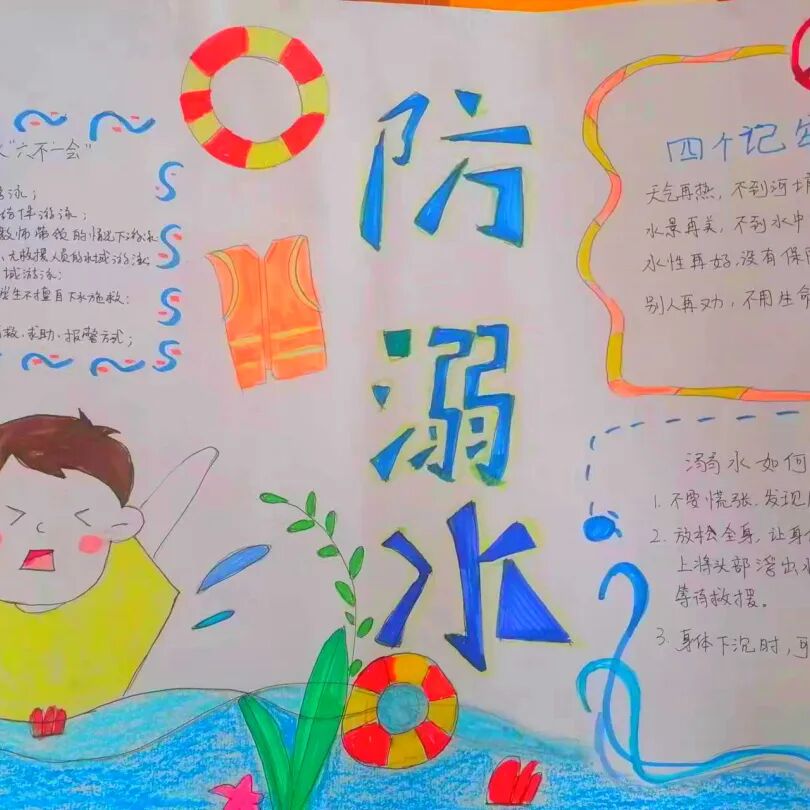 "六不一会"
泳;
结伴游泳;
教师带领的情况下游泳
、无救援人员的水域游泳;
域游泳;
学生不擅自下水施救;
救、求助、报警方式;
防
溺
水
四个记
天气再热,不到河
水景再美,不到水中
水性再好,没有保
别人再劝,不用生命
溺水如何
1. 不要慌张,发现
2. 放松全身,让身
上将头部浮出水
等待救援。
3. 身体下沉时,可